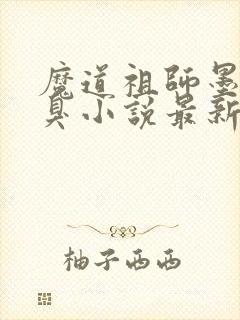 魔道祖師墨
臭小說最新
柚子西西